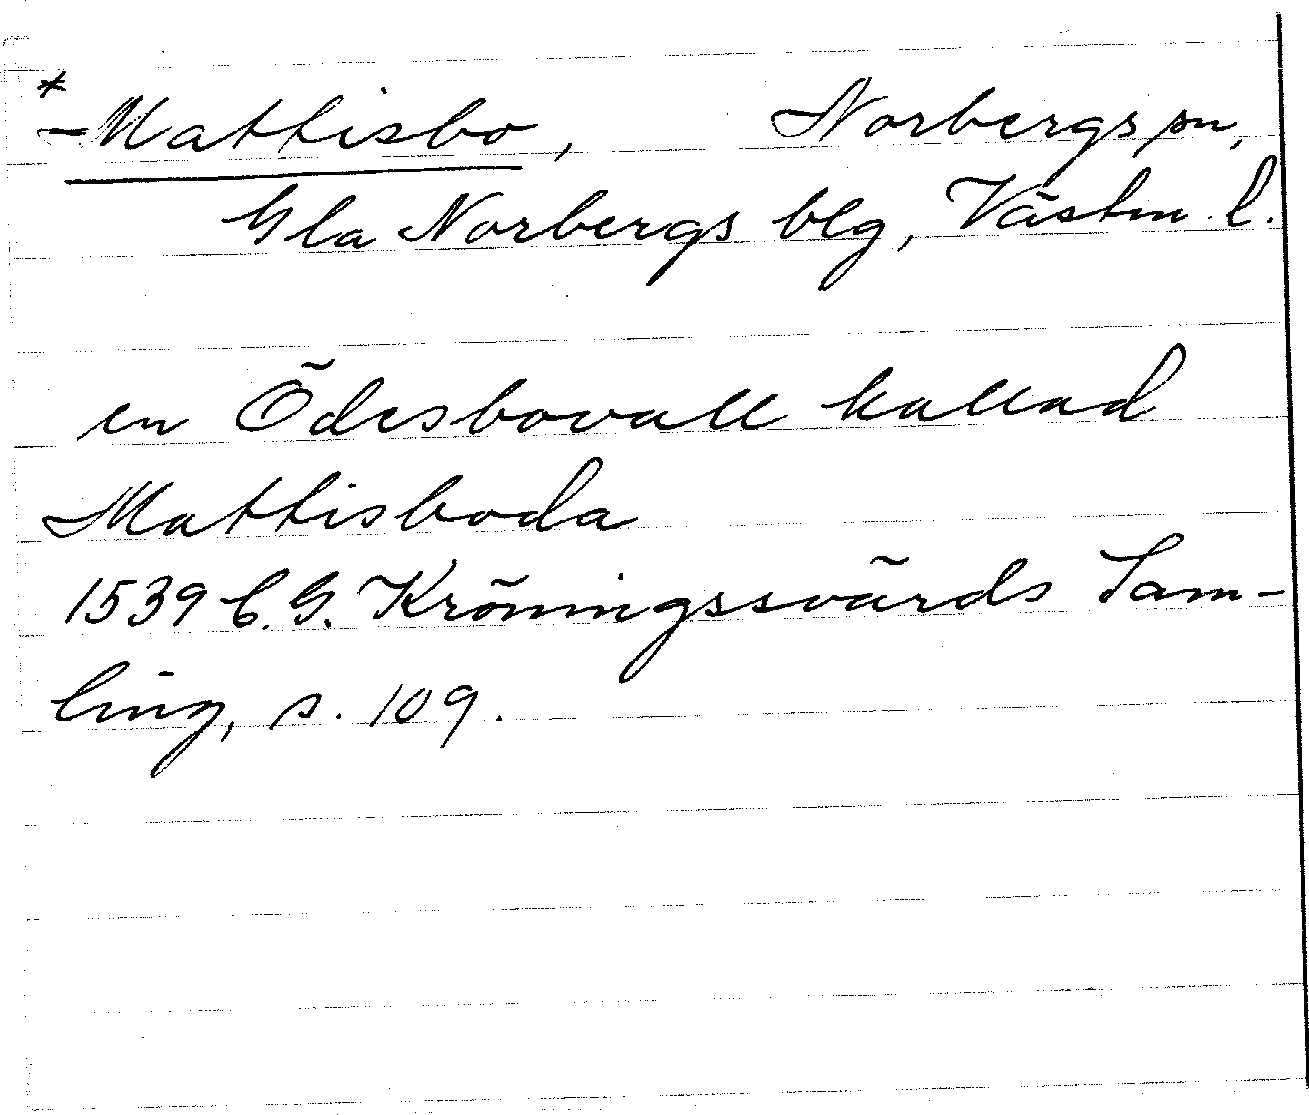 * Mattisbo, Norbergs sn,
Gla Norbergs blg, Västm. l.
en Ödesbovall kallad
Mattisboda
1539 C. G. Kröningssvärds Sam-
ling, s. 109.